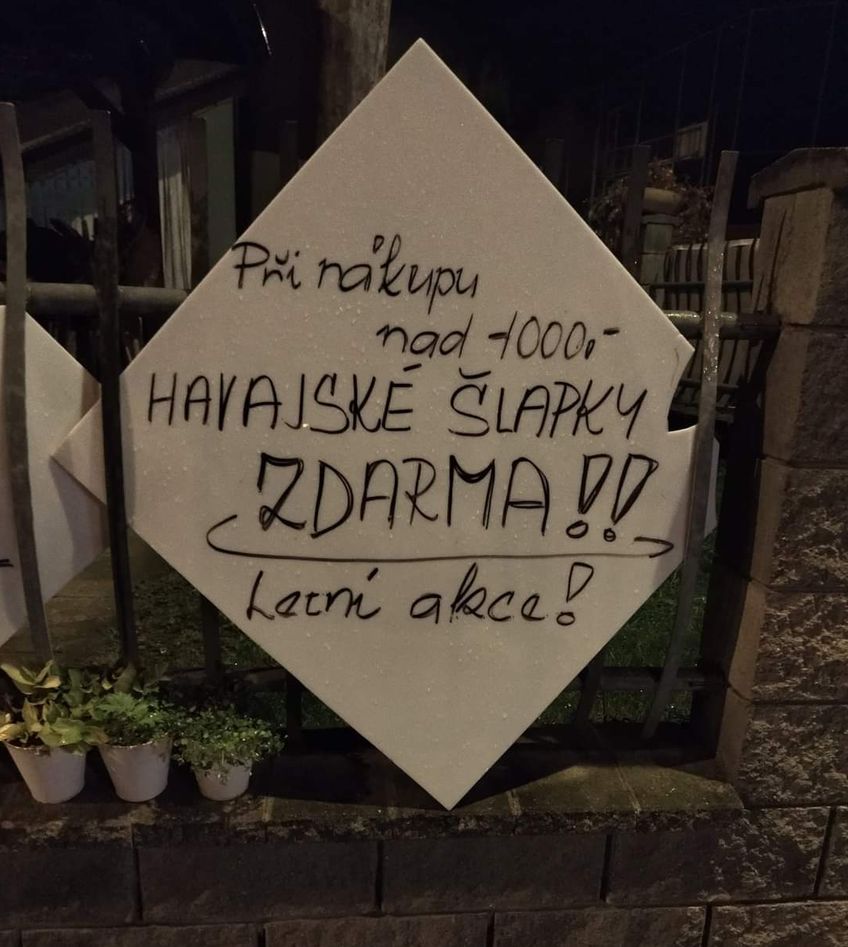 Při nákupu
nad 1000,-
HAVAJSKÉ ŠLAPKY
ZDARMA!!
Letní akce!